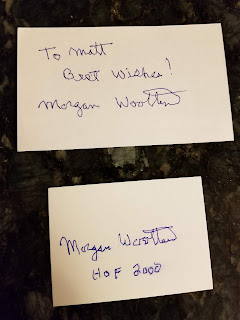 To Matt
Best Wishes!
Morgan Wootten
Morgan Wootten
HOF 2000